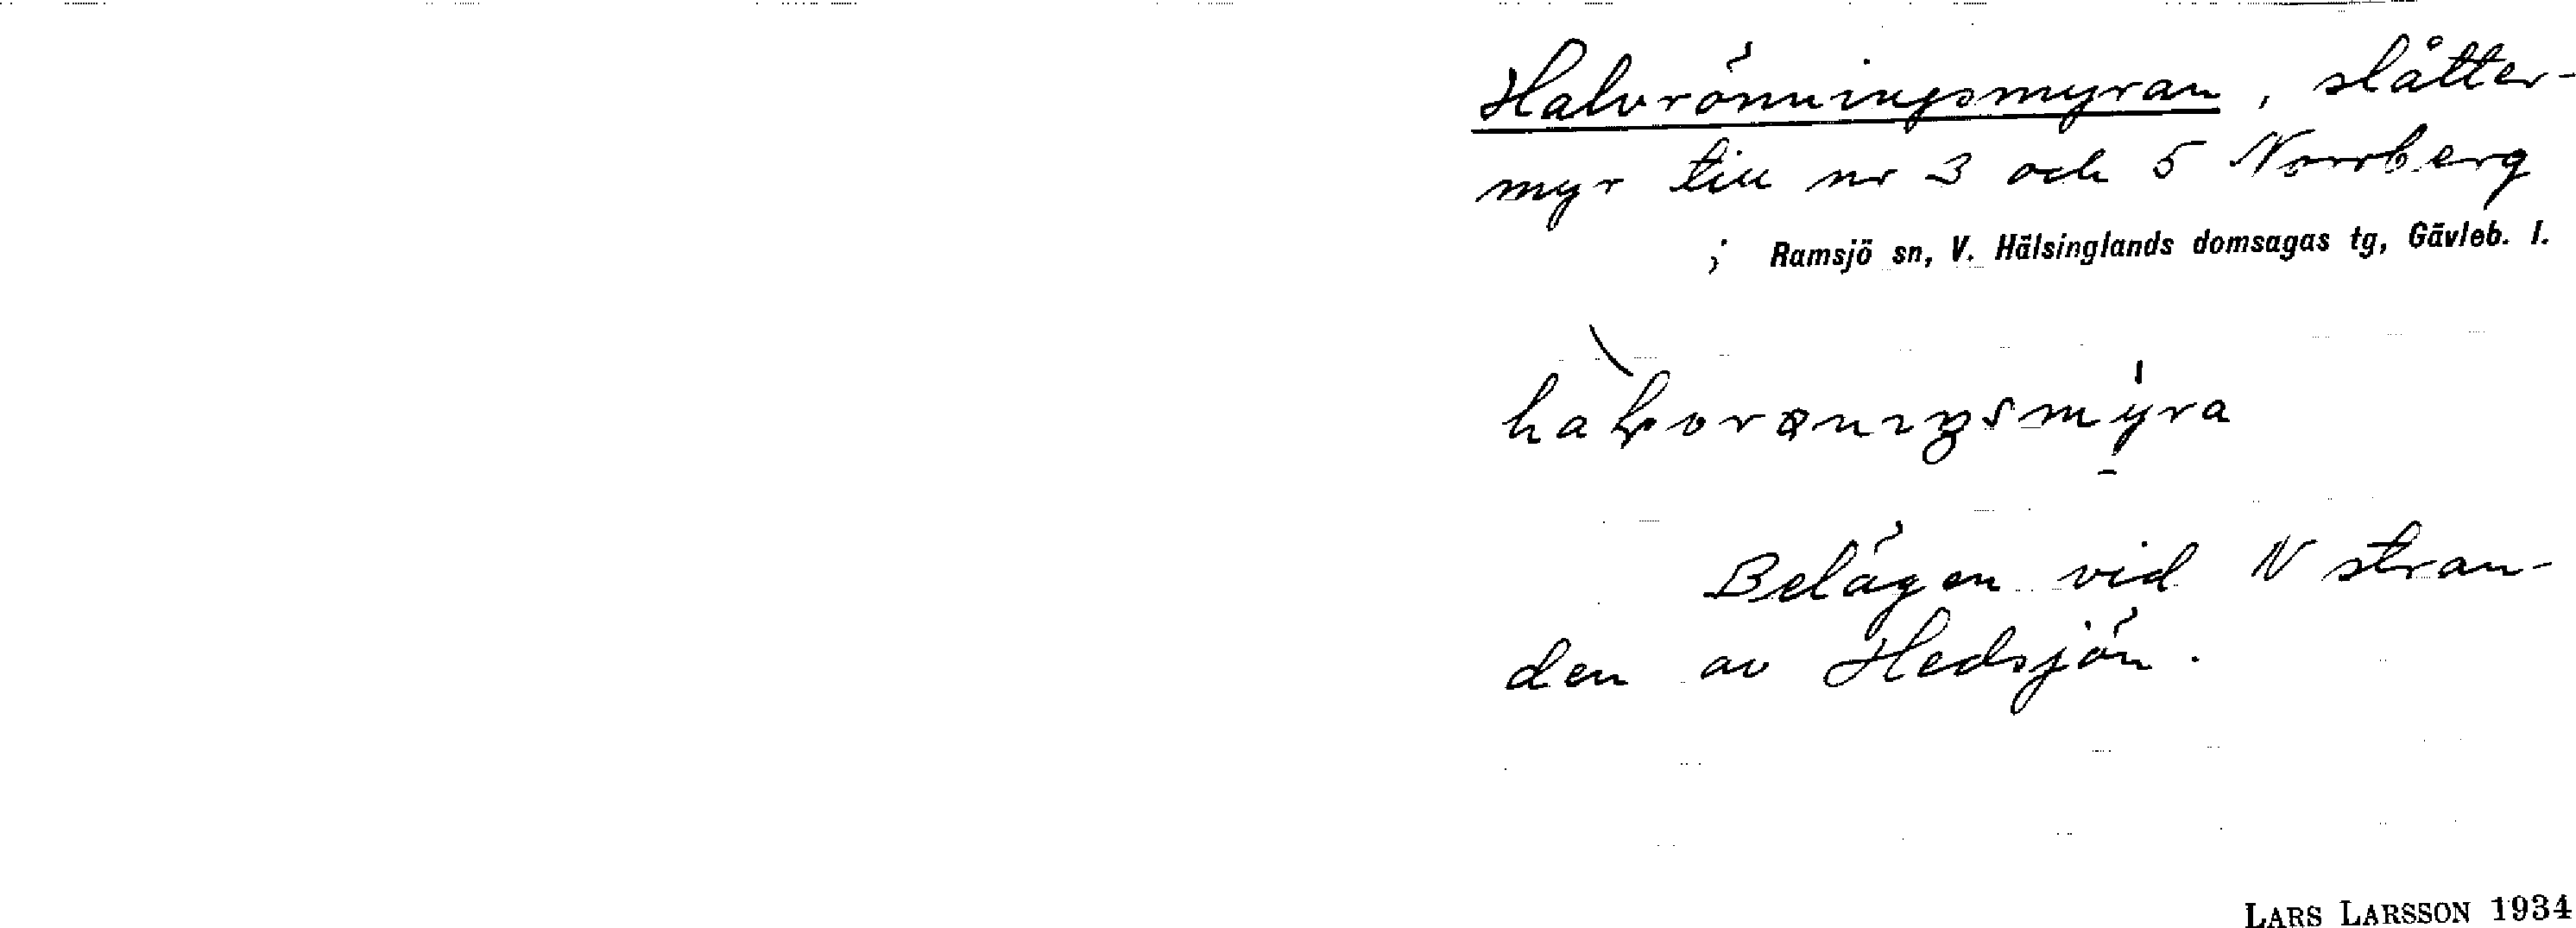 Halvrönningsmyran, slåtter-
myr till nr 3 och 5 Norrberg
; Ramsjö sn, V. Hälsinglands domsagas tg, Gävleb. l.
Belägen vid N stran-
den av Hedsjön.
LARS LARSSON 1934